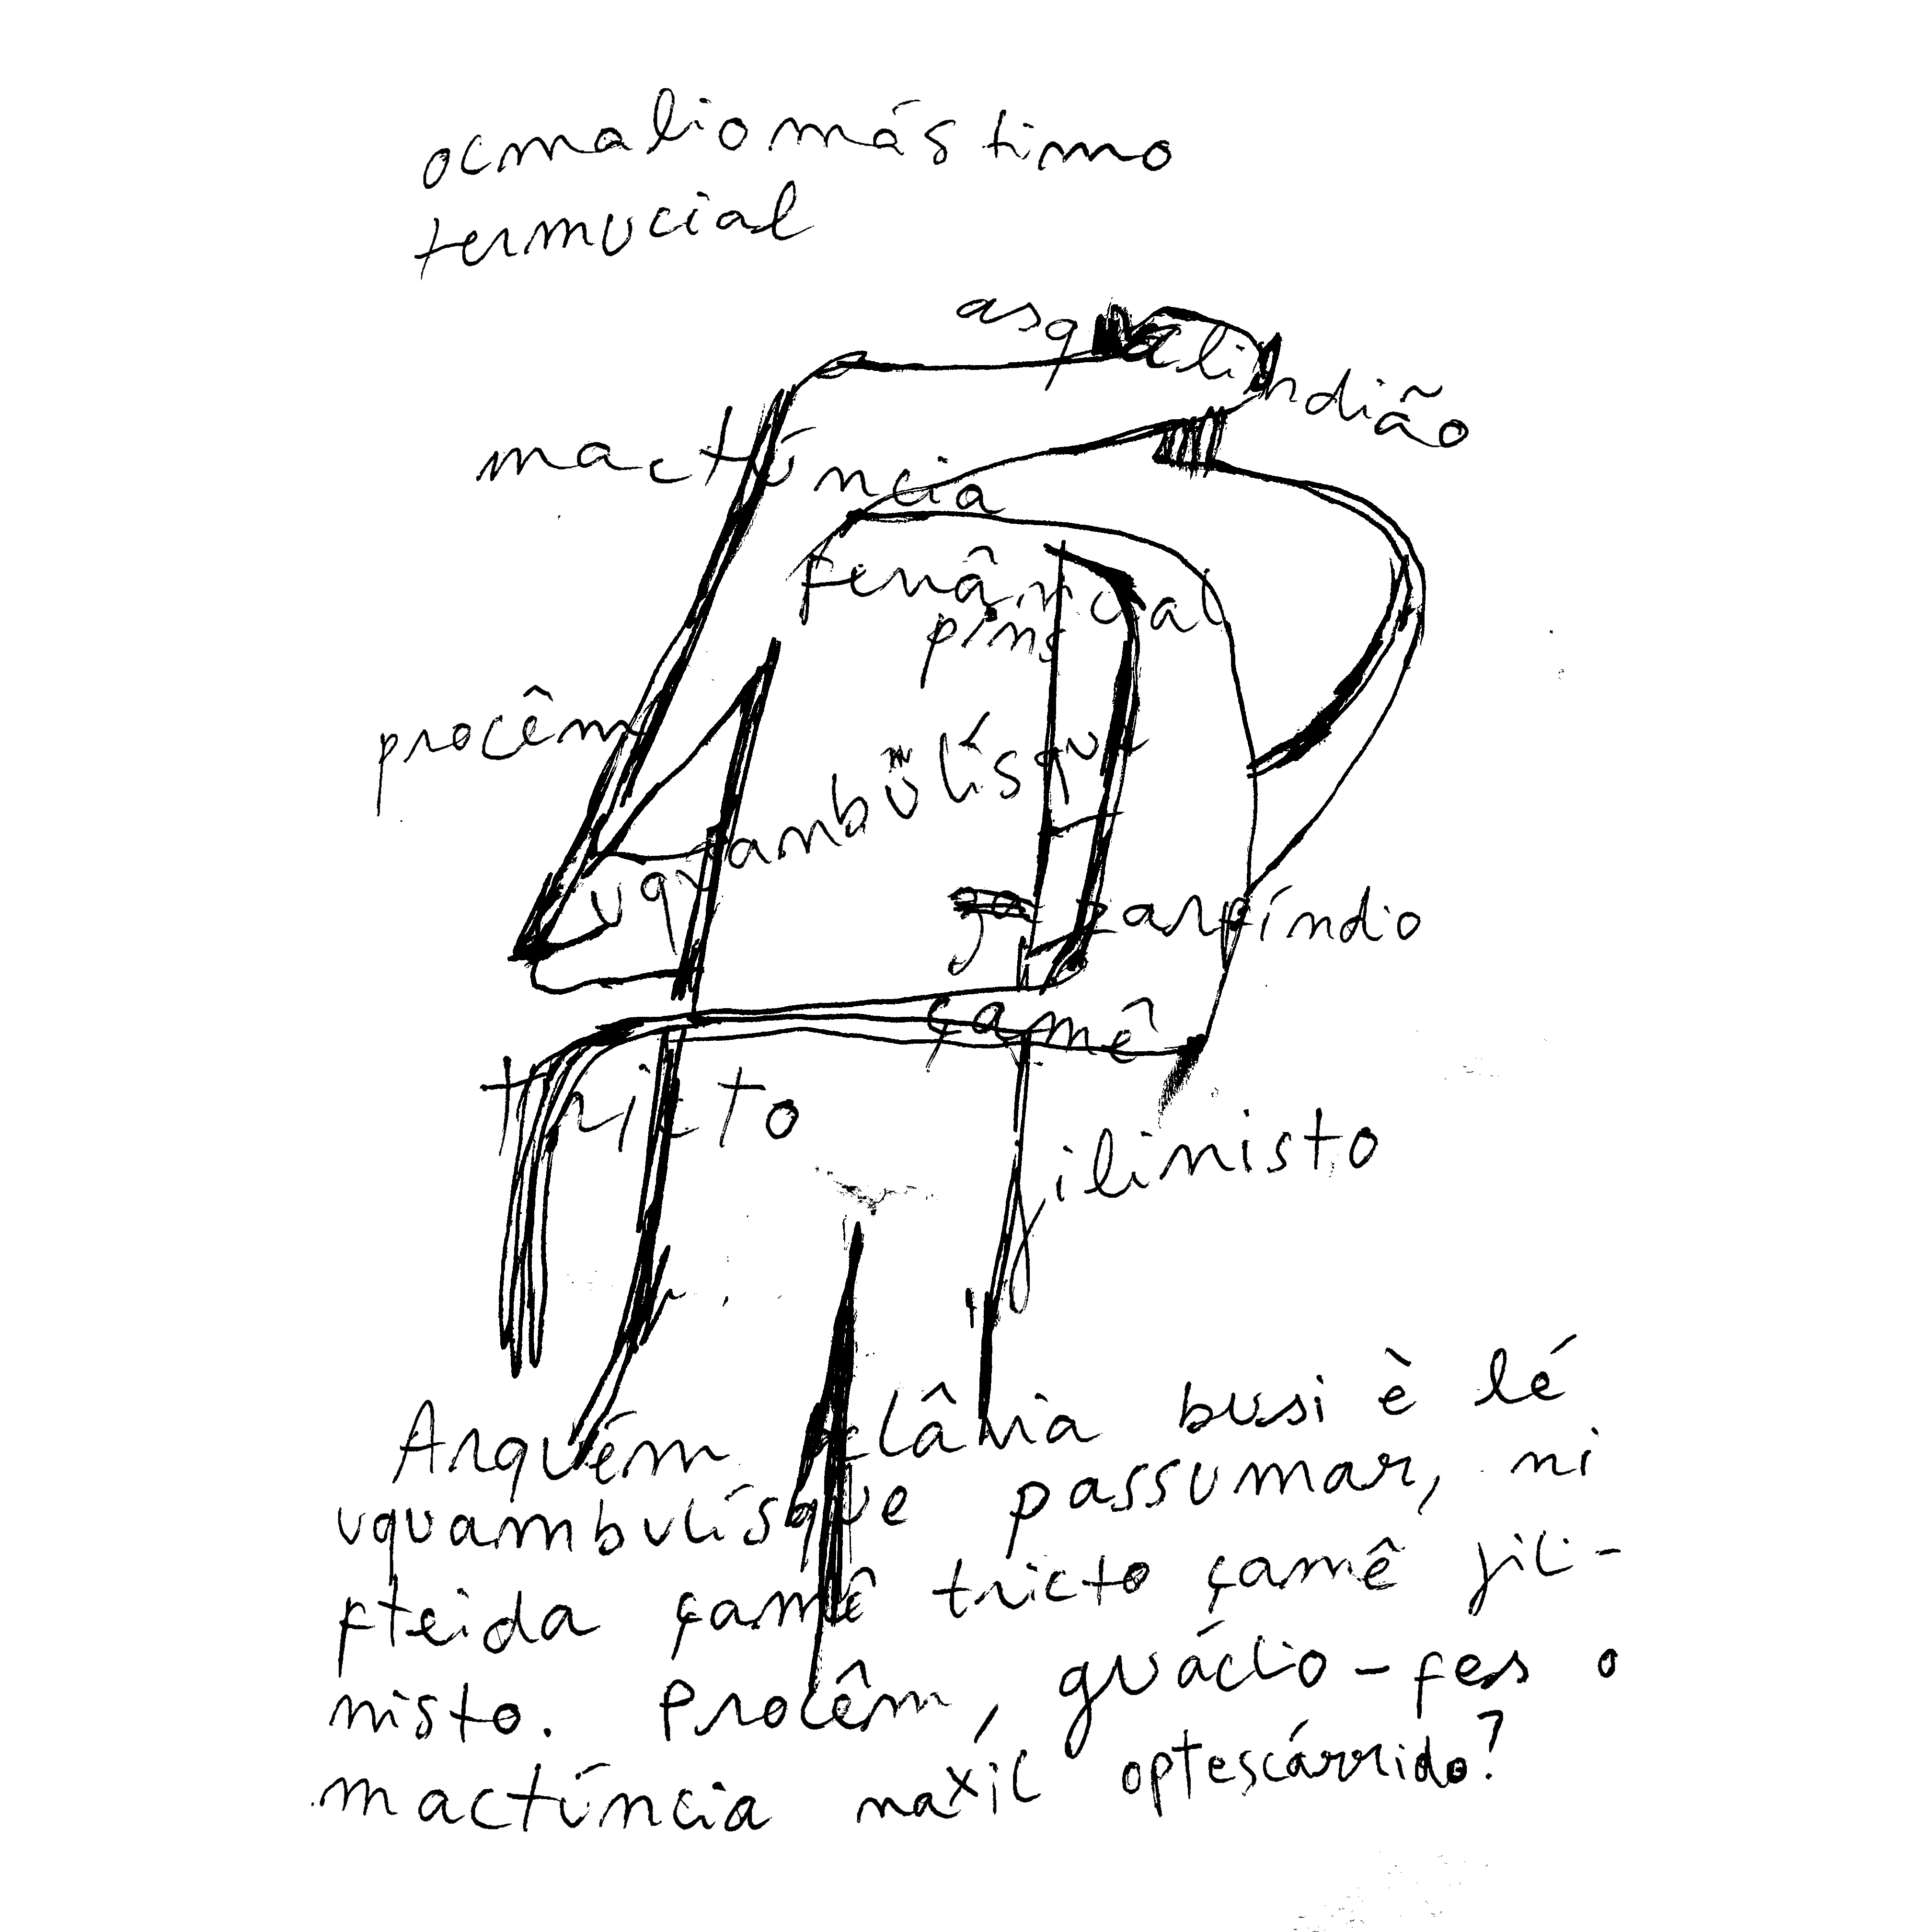 ocmaliomástimo
termucial
asqualindião
mactúncia
fenâncial
pins
procêm
uquambulísque
zarfíndio
çamê
tricto
jilinisto
Arquém clânia busi è lé
uquambulísque passumar, ni
fteida çamê tricto çamê jili-
nisto. Procêm, guáclio-fes o
mactúncia naxíl optescárrido?